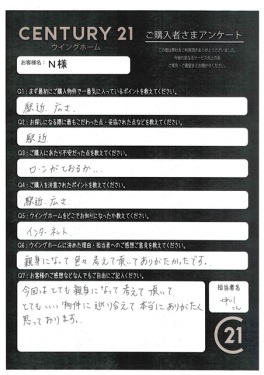 CENTURY 21
ウイングホーム
ご購入者さまアンケート
お客様名: N様
Q1:まず最初にご購入物件で一番気に入っているポイントを教えてください。
駅近 広さ
Q2:お探しになる際に最もこだわった点・妥協された点などを教えてください。
駅近
Q3:ご購入にあたり不安だった点を教えてください。
ローンがとおるか…
Q4:ご購入を決意されたポイントを教えてください。
駅近 広さ
Q5:ウイングホームをどこでお知りになったか教えてください。
インターネット
Q6:ウイングホームに決めた理由・担当者へのご感想ご意見を教えてください。
親身になって色々考えて頂いてありがたかったです。
Q7:お客様のご感想などなんでもご自由にご記入ください。
今回はとても親身になって考えて頂いて
とてもいい物件に巡り合えて本当にありがたく
思っております。
担当者名
21